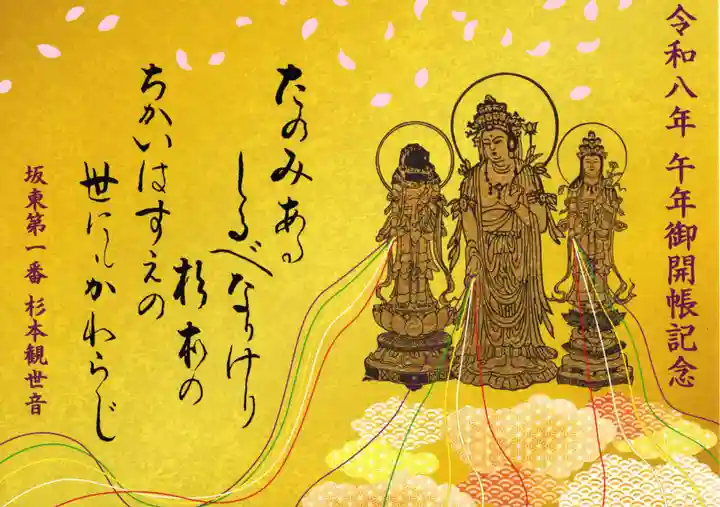 令和八年 午年御開帳記念
たのみある
しるべなりけり
杉本の
ちかいはすえの
世にもかわらじ
坂東第一番 杉本観世音